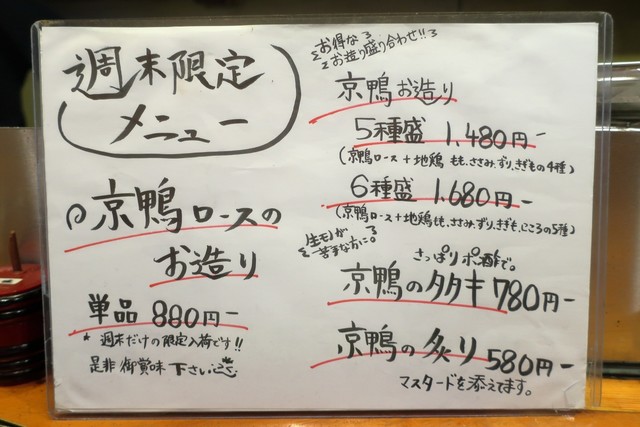 週末限定
メニュー
京鴨ロースの
お造り
単品 880円ー
* 週末だけの限定入荷です!!
是非御賞味下さい
お得な
お造り盛り合わせ!!
京鴨お造り
5種盛 1,480円ー
(京鴨ロース+地鶏 もも、ささみ、ずり、きもの4種)
6種盛 1,680円ー
(京鴨ロース+地鶏もも、ささみ、ずり、きも、こころの5種)
生モノが
苦手な方に。
さっぱりポン酢で。
京鴨のタタキ 780円ー
京鴨の炙り 580円ー
マスタードを添えてます。